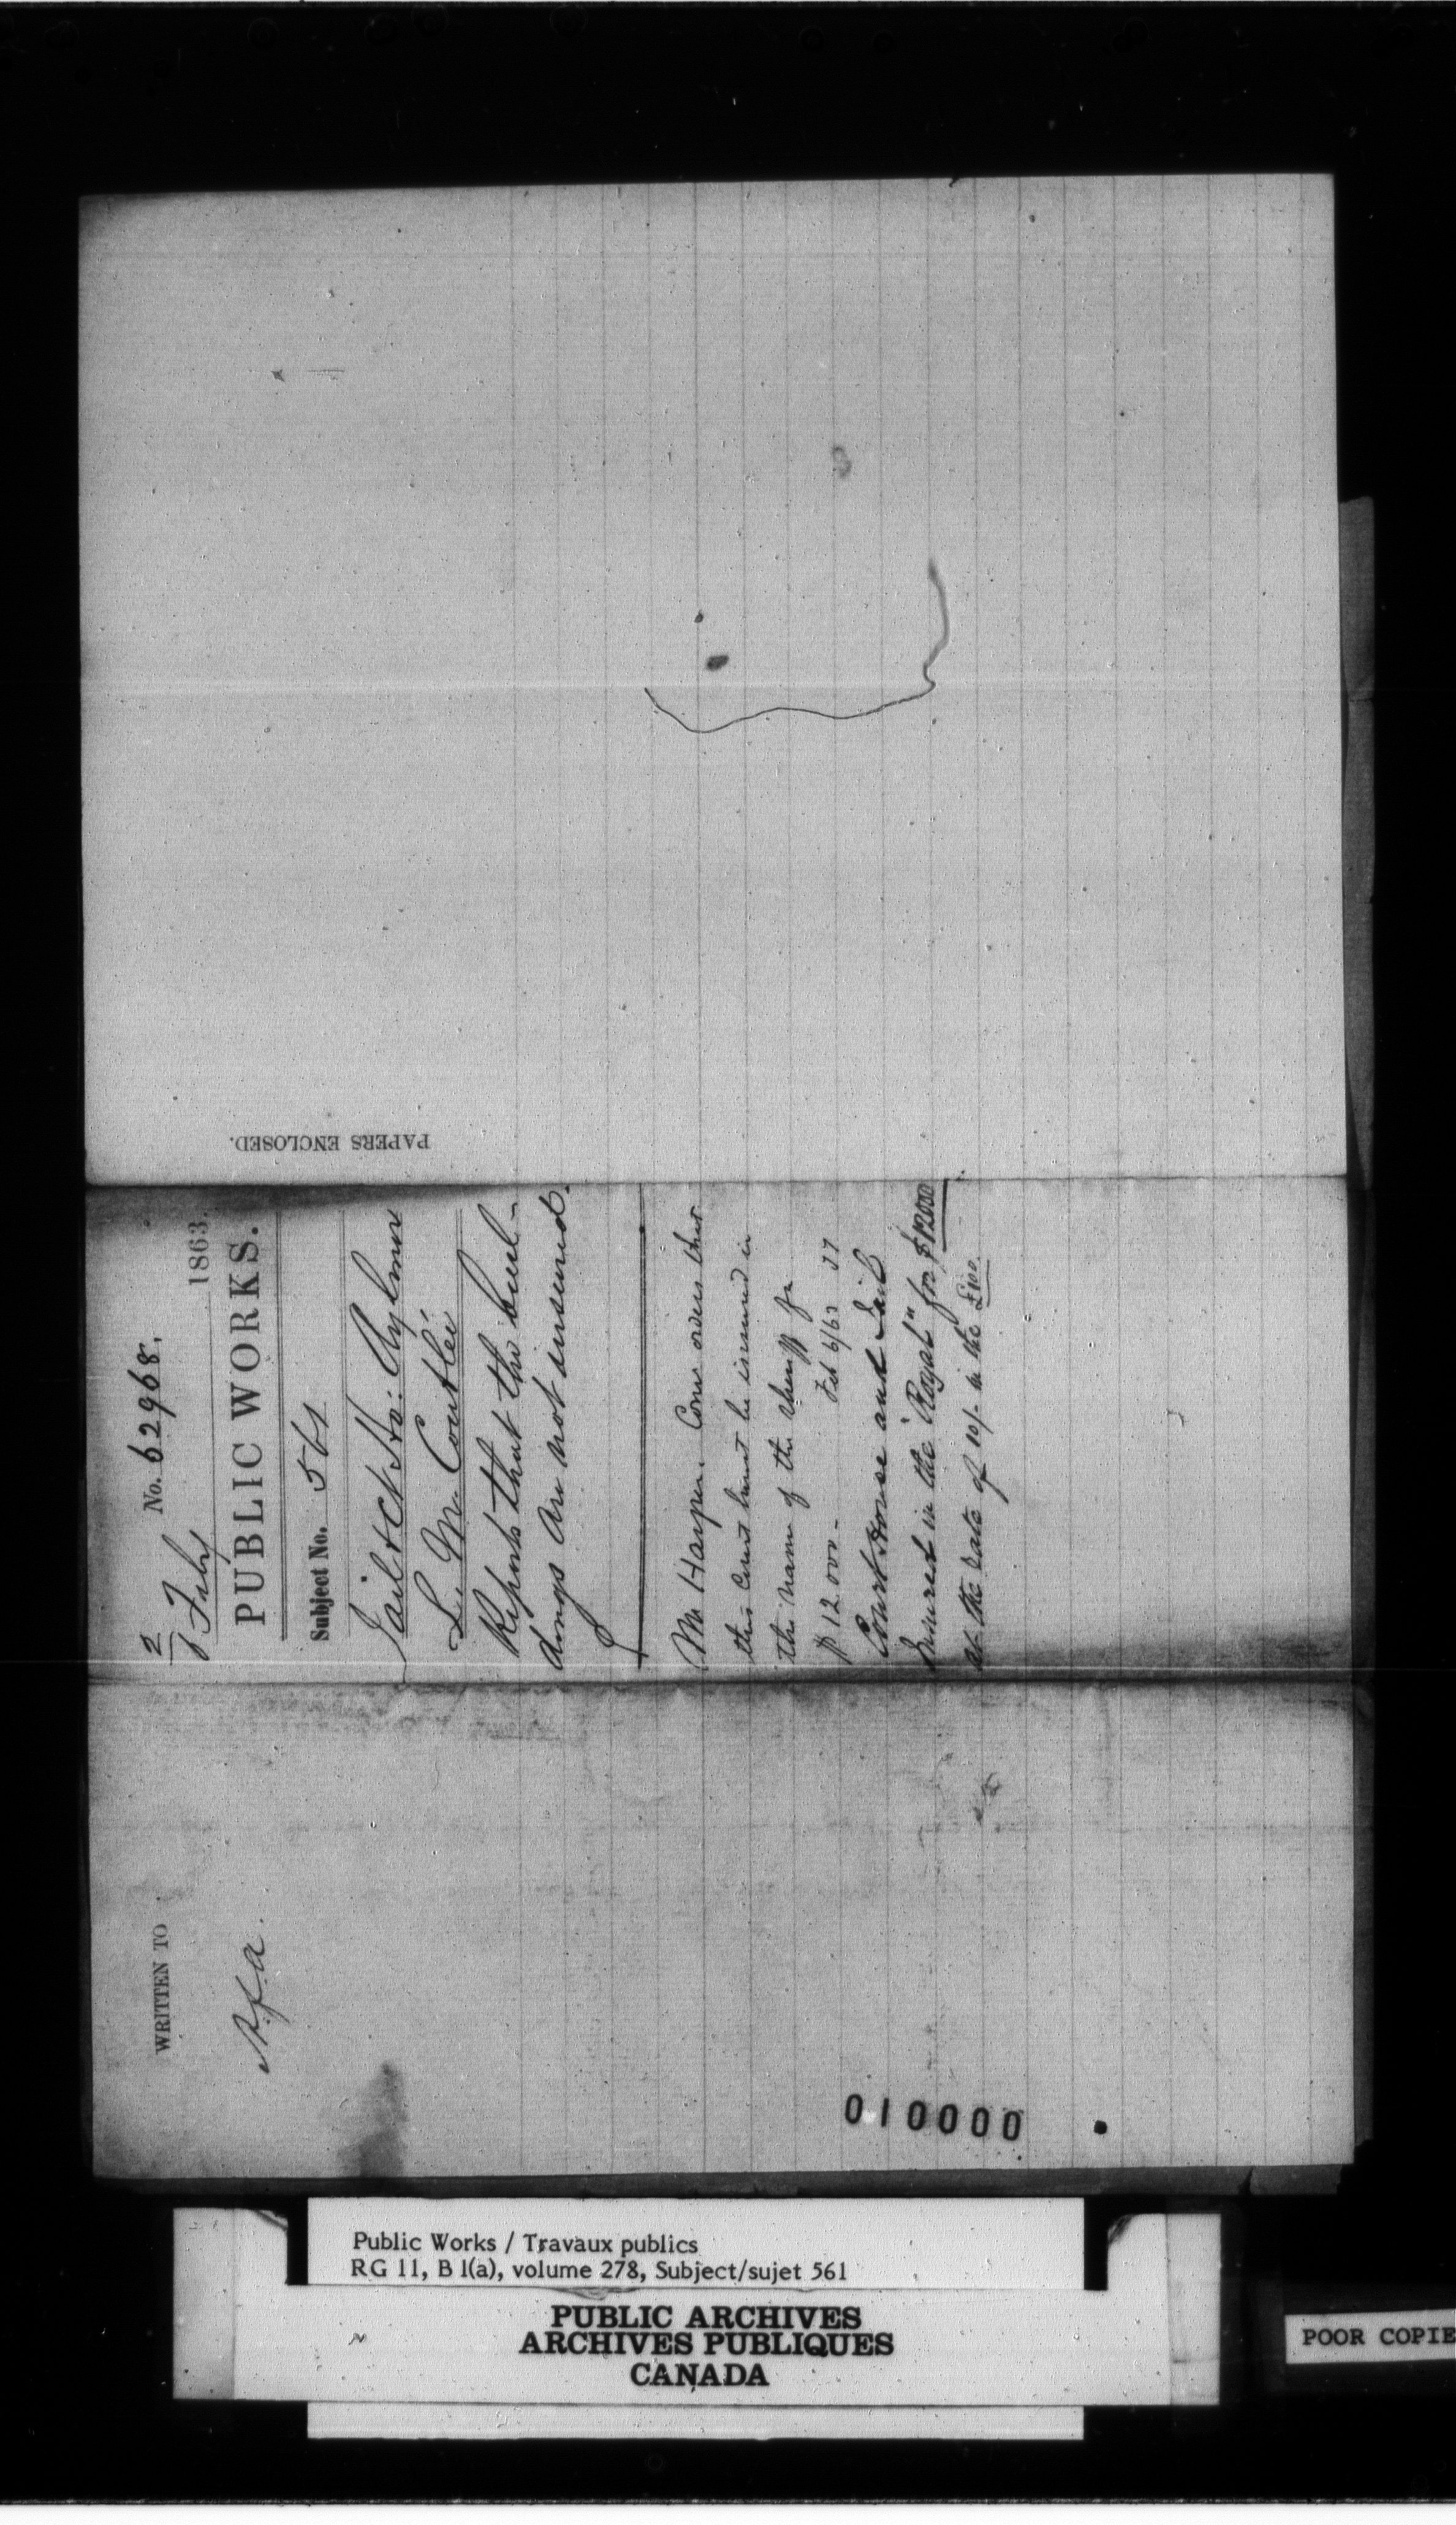 PAPERS ENCLOSED.
2 No. 62968.
6 Feby 1863.
PUBLIC WORKS.
Subject No. 561
Jail & Ct Ho: Aylmer
L. M. Coutlée
Reports that the buil-
dings are not insured.
Mr Harper. Comr orders that
this Court house be insured in
the name of the Sheriff for
$12.000 - Feb 6/63
Court House and Jail
Insured in the "Royal" for $12000
at the rate of 10/- in the £100.
WRITTEN TO
010000
Public Works / Travaux publics
RG 11, B 1(a), volume 278, Subject/sujet 561
PUBLIC ARCHIVES
ARCHIVES PUBLIQUES
CANADA
POOR COPIE